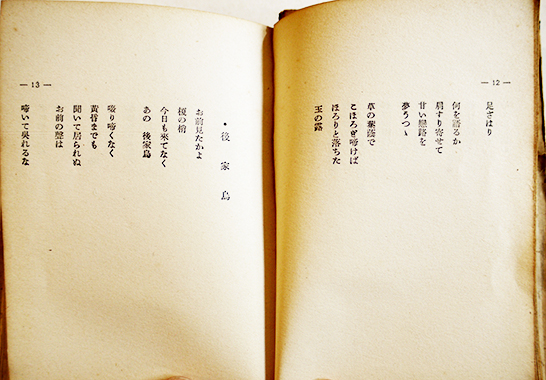 — 12 —
足さはり
何を語るか
肩すり寄せて
甘い戀路を
夢うつゝ
草の葉蔭で
こほろぎ啼けば
ほろりと落ちた
玉の露
— 13 —
• 後家鳥
お前見たかよ
榎の梢
今日も來てなく
あの 後家鳥
啜り啼くなく
黄昏までも
聞いて居られぬ
お前の聲は
啼いて呉れるな